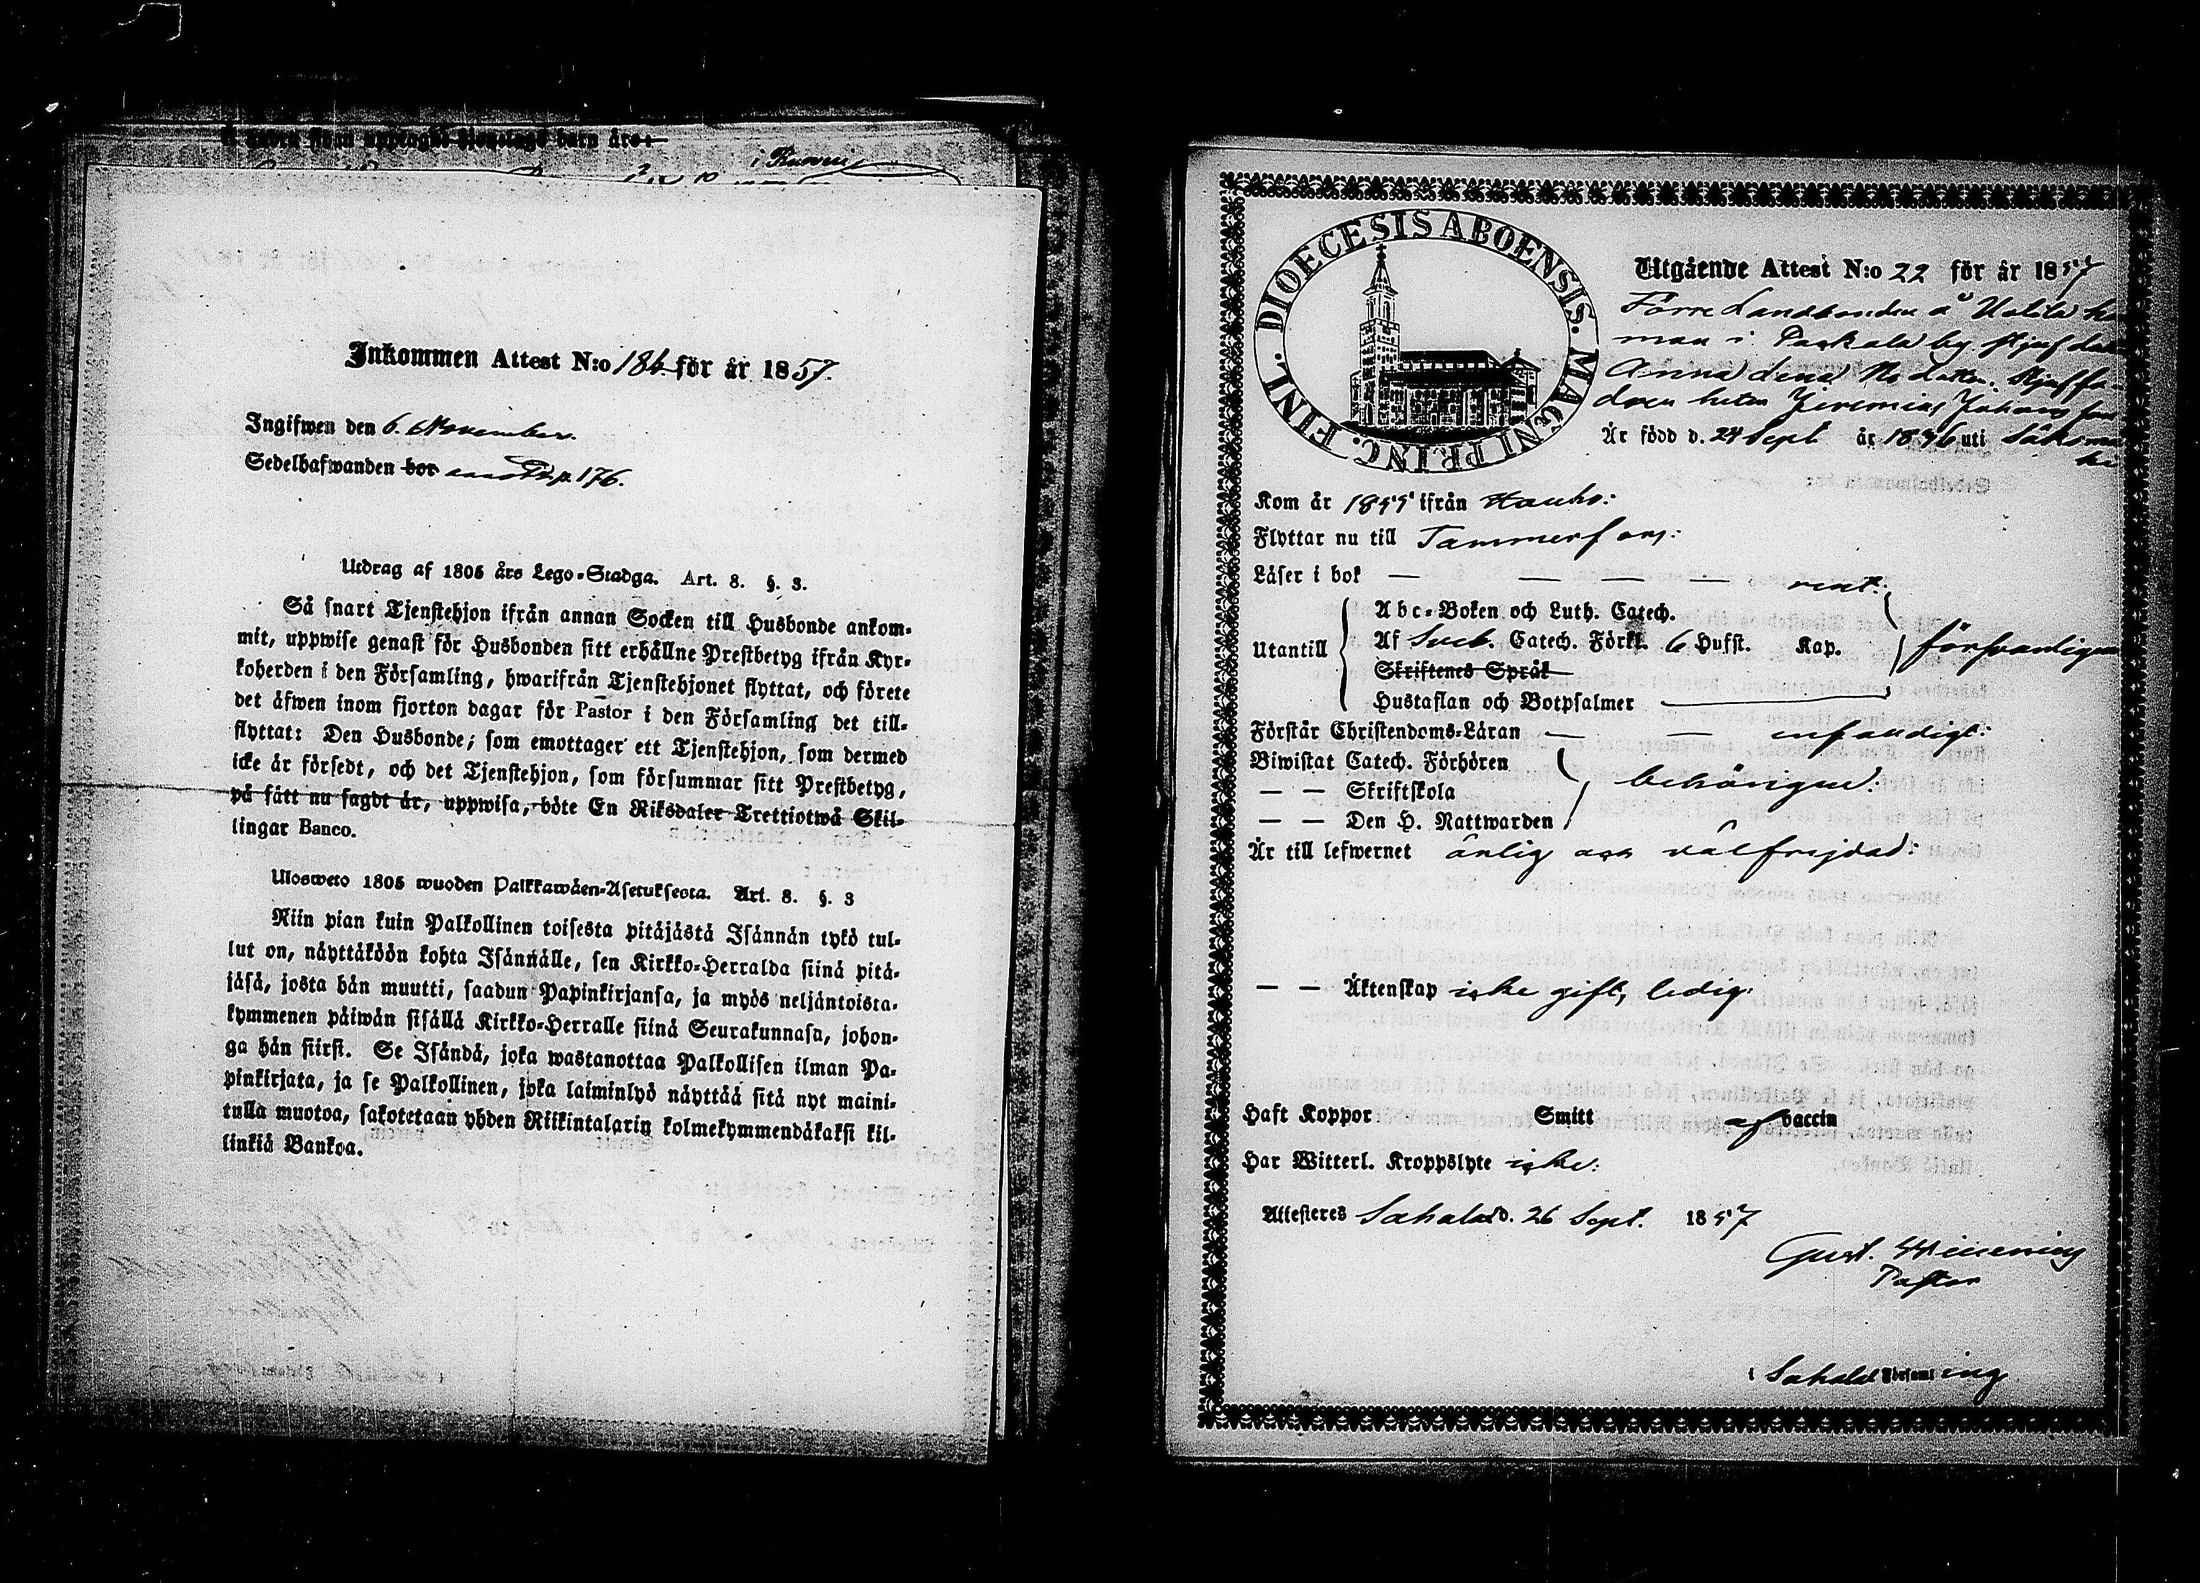 i Kuoren
Inkommen Attest N:o 186. för år 1857.
Ingifwen den 6. November.
Sedelhafwanden bor p. 176.
Utdrag af 1805 års Lego-Stadga. Art. 8. §. 3.
Så snart Tjenstehjon ifrån annan Socken till Husbonde ankom-
mit, uppwise genast för Husbonden sitt erhållne Prestbetyg ifrån Kyr-
koherden i den Församling, hwarifrån Tjenstehjonet flyttat, och förete
det äfwen inom fjorton dagar för Pastor i den Församling det till-
flyttat: Den Husbonde, som emottager ett Tjenstehjon, som dermed
icke är försedt, och det Tjenstehjon, som försummar sitt Prestbetyg,
på sätt nu sagdt är, uppwisa, böte En Riksdaler Trettiotwå Skil-
lingar Banco.
Ulosweto 1805 wuoden Palkkawäen-Asetuksesta. Art. 8. §. 3
Niin pian kuin Palkollinen toisesta pitäjästä Isännän tykö tul-
lut on, näyttäköön kohta Isännälle, sen Kirkko-Herralda siinä pitä-
jäsä, josta hän muutti, saadun Papinkirjansa, ja myös neljäntoista-
kymmenen päiwän sisällä Kirkko-Herralle siinä Seurakunnasa, johon-
ga hän siirsi. Se Isändä, joka wastanottaa Palkollisen ilman Pa-
pinkirjata, ja se Palkollinen, joka laiminlyö näyttää sitä nyt maini-
tulla muotoa, sakotetaan yhden Riikintalarin kolmekymmendäkaksi kil-
linkiä Bankoa.
DIOECESIS ABOENSIS. MAGNI PRINC. FINL.
Utgående Attest N:o 22 för år 1857
Förre Landbonden å Uotila
man i Paskala by
Anna Lena
dren heter Jeremias Johansson
Är född d. 24 Sept år 1836 uti Sääksmä
ki
Kom år 1855 ifrån Hauho:
Flyttar nu till Tammerfors:
Läser i bok — — — — rent:
Abc-Boken och Luth. Catech.
Utantill Af Sveb. Catech. Förkl. 6 Hufst. Kap. försvarligen
Skriftenes Språk
Hustaflan och Botpsalmer
Förstår Christendoms-Läran — — enfaldigt:
Biwistat Catech. Förhören
— — Skriftskola behörigen:
— — Den H. Nattwarden
Är till lefwernet ärlig och välfrejdad:
— — Äktenskap icke gift, ledig:
Haft Koppor Smitt af vaccin
Har Witterl. Kroppslyte icke:
Attesteres Sahalax d. 26 Sept. 1857
Gust.
Pastor
i Sahalax Församling